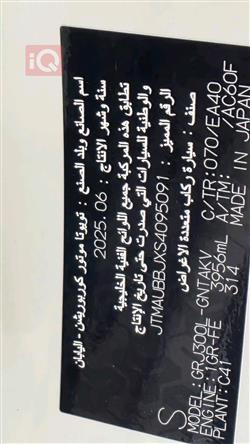 iQ
اسم المصنع وبلد الصنع : تويوتا موتور كوربوريشن - اليابان
سنة وشهر الانتاج : 2025.06
تطابق هذه المركبة جميع اللوائح الفنية الخليجية
والوطنية للسيارات التي صدرت حتى تاريخ الإنتاج
الرقم المميز : JTMAUBBJXS4095091
صنف : سيارة ركاب متعددة الاغراض
S
MODEL: GRJ300L-GNTAKV C/TR: 070/EA40
ENGINE: 1GR-FE 3956mL A/TM: AC60F
PLANT: C41 314 MADE IN JAPAN